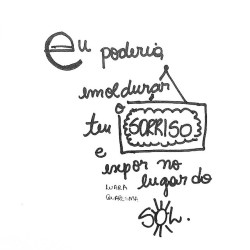 Eu poderia
emoldurar
o
teu SORRISO
e
expor no
lugar do
SOL.